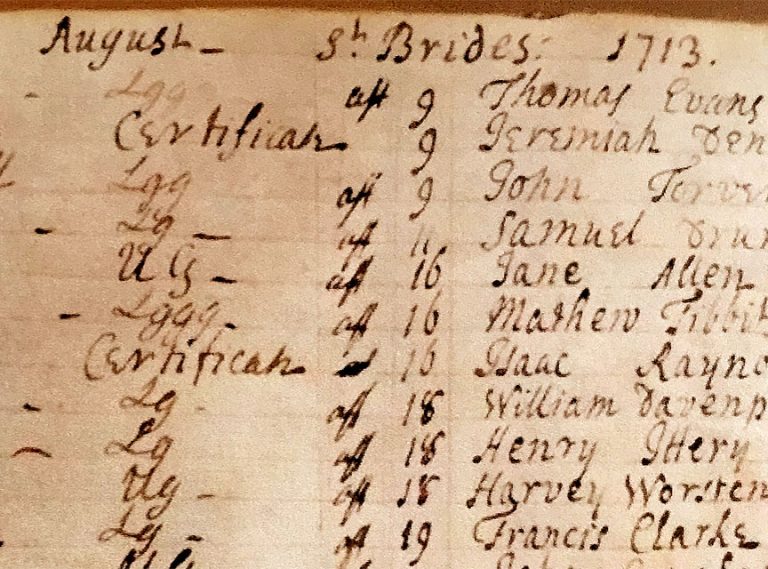 August - St. Brides: 1713.
- Lgg aft 9 Thomas Evans
Certificate 9 Jeremiah Den
Lgg aft 9 John Torver
- Lg - aft 11 Samuel Drum
UG - aft 16 Jane Allen
- Lggg aft 16 Mathew Tibbit
Certificate 16 Isaac Rayno
- Lg - aft 18 William Davenp
- Lg aft 18 Henry
Ug - aft 18 Harvey Worsten
Lg - aft 19 Francis Clarke